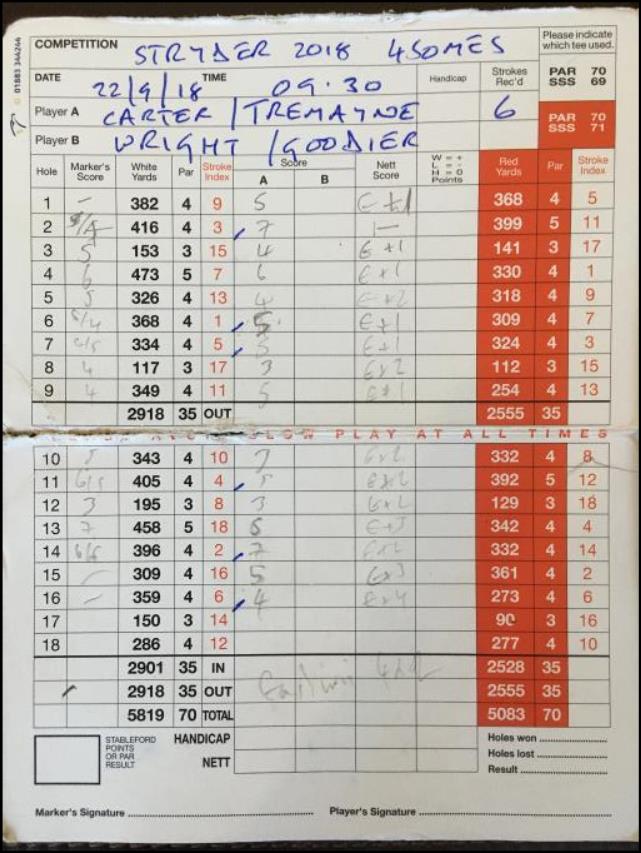 01883 344244
COMPETITION STRYDER 2018 4SOMES
Please indicate which tee used.
DATE 22/9/18 TIME 09·30 Handicap Strokes Rec'd PAR 70 SSS 69
Player A CARTER / TREMAYNE 6 PAR 70 SSS 71
Player B WRIGHT / GOODIER
Hole Marker's Score White Yards Par Stroke Index Score A B Nett Score W = + L = - H = 0 Points Red Yards Par Stroke Index
1 - 382 4 9 5 368 4 5
2 416 4 3 7 399 5 11
3 5 153 3 15 4 E+1 141 3 17
4 6 473 5 7 6 E+1 330 4 1
5 5 326 4 13 4 E+2 318 4 9
6 5/4 368 4 1 5 E+1 309 4 7
7 6/5 334 4 5 5 E+1 324 4 3
8 4 117 3 17 3 E+2 112 3 15
9 4 349 4 11 5 E+1 254 4 13
2918 35 OUT 2555 35
SLOW PLAY AT ALL TIMES
10 5 343 4 10 332 4 8
11 6/5 405 4 4 5 392 5 12
12 3 195 3 8 3 129 3 18
13 7 458 5 18 6 E+3 342 4 4
14 6/5 396 4 2 7 332 4 14
15 309 4 16 5 E+3 361 4 2
16 - 359 4 6 4 E+4 273 4 6
17 150 3 14 90 3 16
18 286 4 12 277 4 10
2901 35 IN 2528 35
2918 35 OUT 2555 35
5819 70 TOTAL 5083 70
STABLEFORD POINTS OR PAR RESULT HANDICAP Holes won
Holes lost
NETT Result
Marker's Signature Player's Signature